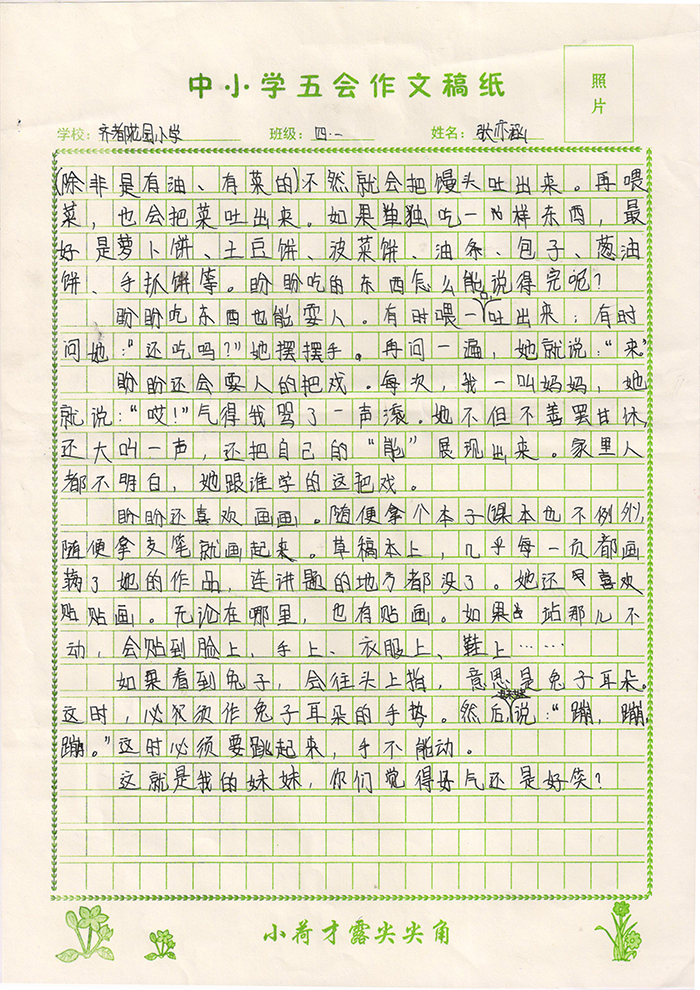 中小学五会作文稿纸
照片
学校：齐都花园小学 班级：四·一 姓名：耿亦涵
(除非是有油、有菜的)不然就会把馒头吐出来。再喂
菜，也会把菜吐出来。如果单独吃一样东西，最
好是萝卜饼、土豆饼、波菜饼、油条、包子、葱油
饼、手抓饼等。盼盼吃的东西怎么能说得完呢？
盼盼吃东西也能耍人。有时喂一吐出来；有时
问她：“还吃吗？”她摆摆手。再问一遍，她就说：“来”
盼盼还会耍人的把戏。每次，我一叫妈妈，她
就说：“哎！”气得我骂了一声滚。她不但不善罢甘休，
还大叫一声，还把自己的“能”展现出来。家里人
都不明白，她跟谁学的这把戏。
盼盼还喜欢画画。随便拿个本子(课本也不例外)，
随便拿支笔就画起来。草稿本上，几乎每一页都画
满了她的作品，连讲题的地方都没了。她还喜欢
贴贴画。无论在哪里，也有贴画。如果站那儿不
动，会贴到脸上、手上、衣服上、鞋上……
如果看到兔子，会往头上指，意思是兔子耳朵。
这时，必须作兔子耳朵的手势。然后妹妹说：“蹦，蹦，
蹦。”这时必须要跳起来，手不能动。
这就是我的妹妹，你们觉得好气还是好笑？
小荷才露尖尖角